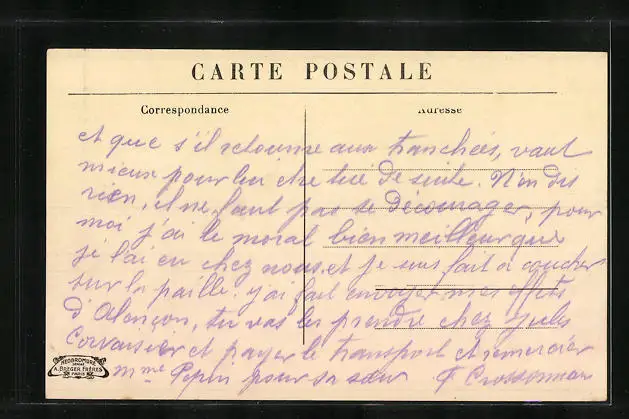 CARTE POSTALE
Correspondance
Adresse
et que s'il retourne aux tranchées, vaut
mieux pour lui être tué de suite. N'en dis
rien, il ne faut pas se décourager, pour
moi j'ai le moral bien meilleur que
je l'ai eu chez nous, et je suis fait à coucher
sur la paille. j'ai fait envoyer mes effets
d'Alençon, tu vas les prendre chez Jules
et payer le transport et remercier
Mme Pepin pour sa sœur
NEOBROMURE
A. BREGER FRÈRES
PARIS